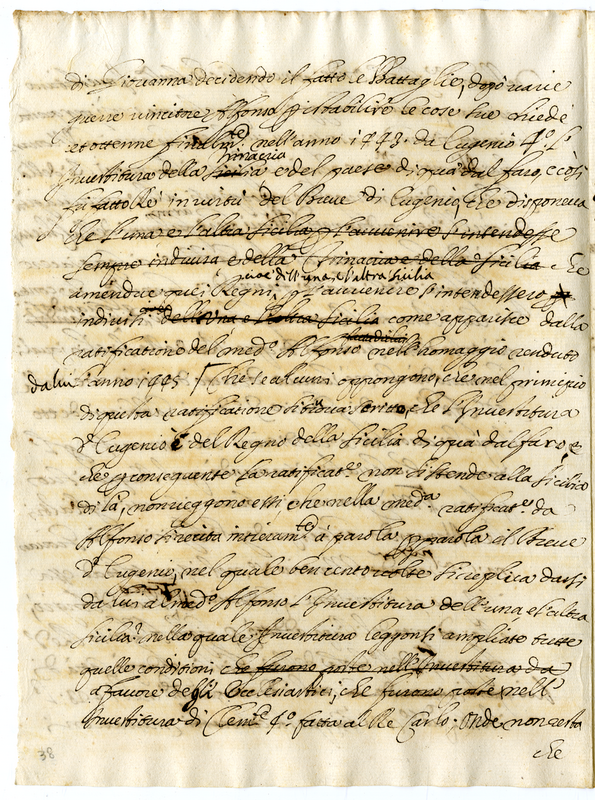 di Giovanna decidendo il fatto le Battaglie, dopo varie
guerre vincitore Alfonso p stabilire le cose sue chiede
et ottenne finalm.te nell'anno 1443. da Eugenio 4.o l'
Trinacria
Investitura della Sicilia e del paese di quà dal faro, e così
fù fatto Rè in virtù del Breve di Eugenio, che disponeva
che l'una e l'altra Sicilia p l'avvenire s'intendesse
sempre indivisa e della Trinacria e della Sicilia che
cioè dell'una, e l'altra Sicilia
amendue quei Regni, p l'avvenire s'intendessero
indivisi dell'una e l'altra Sicilia come apparisce dalla
ratificatione del med.o Alfonso nell'homaggio renduto
da lui l'anno 1445 Che se alcuni oppongono, che nel principio
di questa ratificatione si trova scritto, che l'Investitura
d'Eugenio è del Regno della Sicilia di quà dal faro, e
che p conseguente la ratificat.e non si stende alla Sicilia
di là, non veggono essi che nella med.a ratificat.e da
Alfonso si recita intieram.te à parola p parola il Breve
d'Eugenio, nel quale ben cento volte si replica darsi
da lui al med.o Alfonso l'Investitura dell'una e l'altra
Sicilia: nella quale Investitura leggonsi ampliate tutte
quelle condizioni, che furono poste nell'Investitura da
a favore degli Ecclesiastici, che furono poste nell'
Investitura di Clem.e 4.o fatta al Re Carlo; Onde non resta
che
38